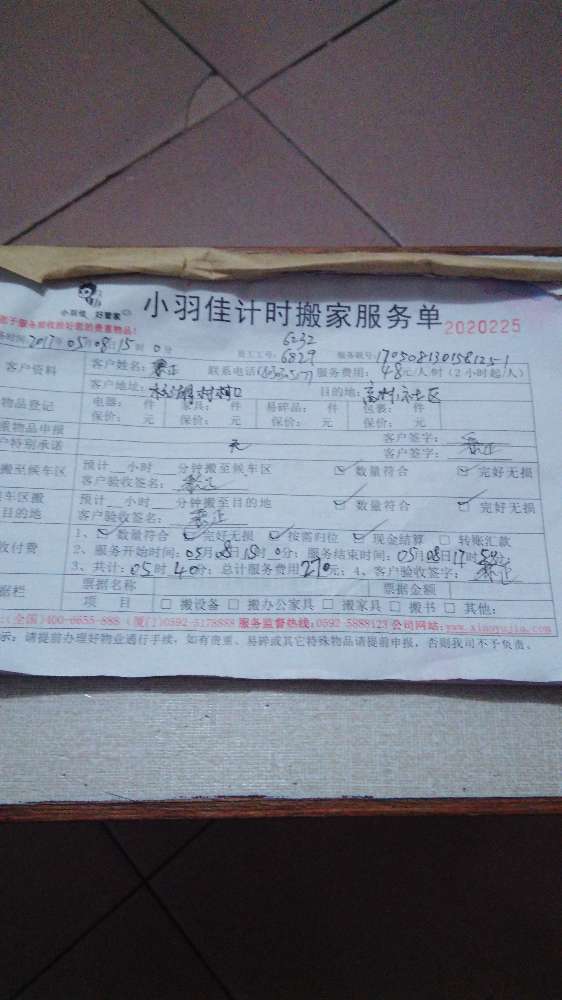 小羽佳 好管家
小羽佳计时搬家服务单 2020225
6232
时间:2017年05月08日15时0分 员工工号:6829 服务账号:170508130158125-1
客户资料 客户姓名: 联系电话 服务费用:48元/人/时(2小时起/人)
客户地址: 目的地:高林社区
物品登记 电器: 件 家具: 件 易碎品: 件 包装: 件
保价: 元 保价: 元 保价: 元 保价: 元
物品申报 客户签字:
户特别承诺 元 客户签字:
搬至候车区 预计__小时__分钟搬至候车区 数量符合 完好无损
客户验收签名:
车区搬 预计__小时__分钟搬至目的地 数量符合 完好无损
目的地 客户验收签名:
收付费 1、 数量符合 完好无损 按需归位 现金结算 转账汇款
2、服务开始时间:05月08日15时0分;服务结束时间:05月08日17时50分
3、共计:05时40分;总计服务费用270元;4、客户验收签字:
据栏 票据名称 票据金额
项 目 搬设备 搬办公家具 搬家具 搬书 其他:
(全国)400-6655-888 (厦门)0592-5178888 服务监督热线:0592-5888123 公司网站:www.xiaoyujia.com
示:请提前办理好物业通行手续,如有贵重、易碎或其它特殊物品请提前申报,否则我司不予负责。